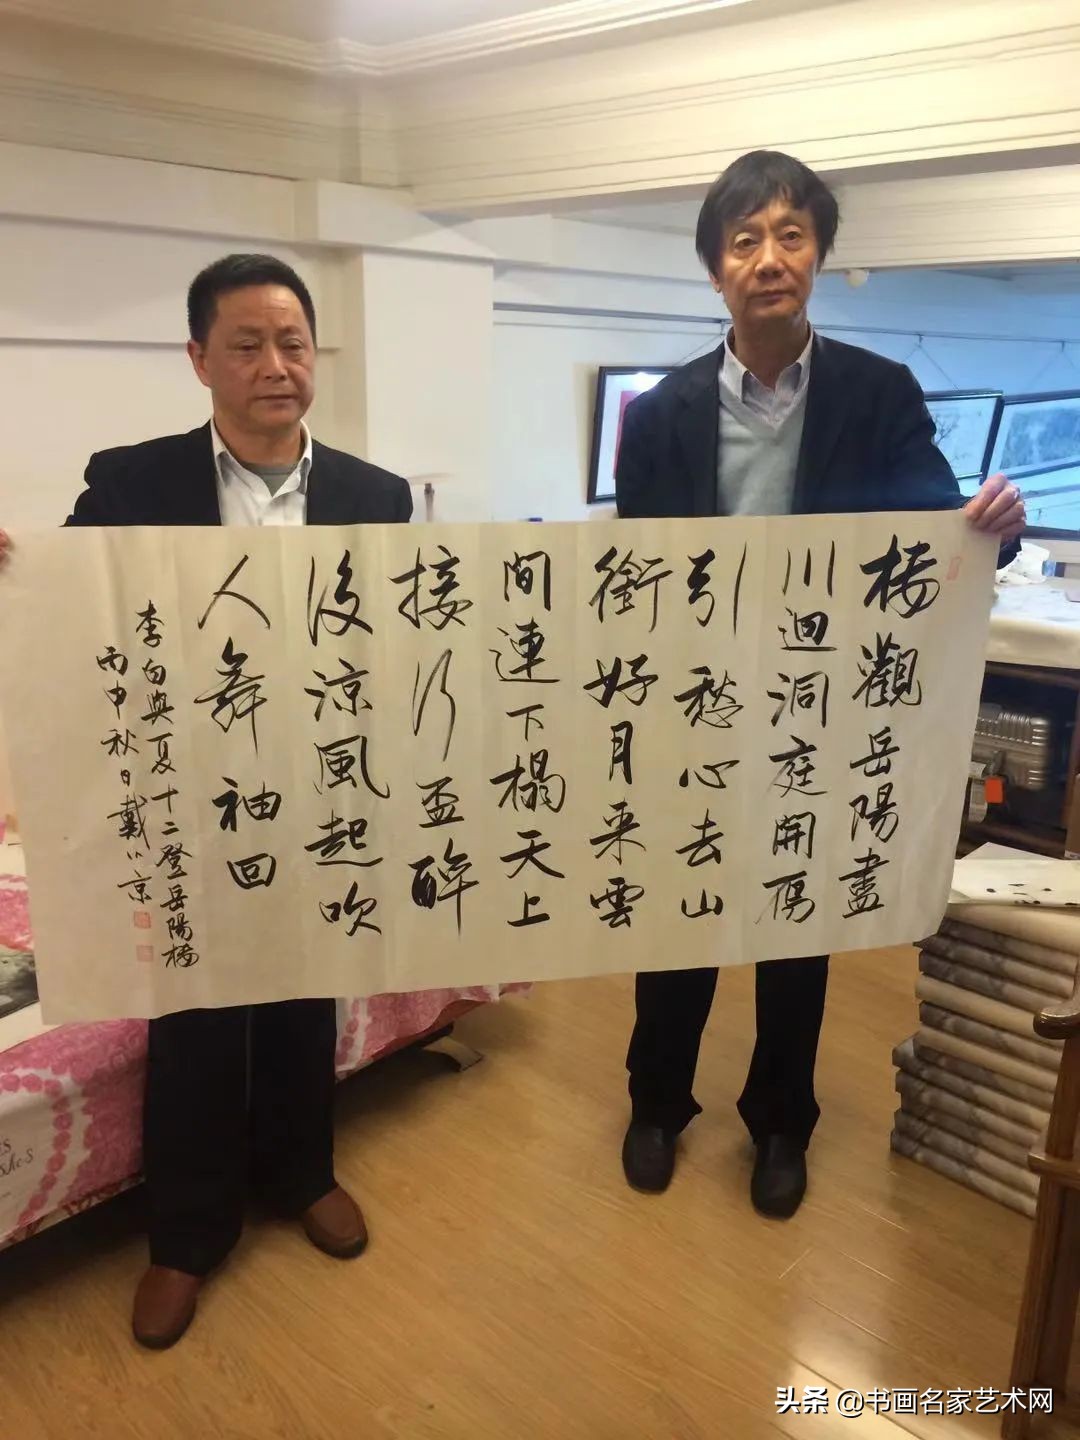 楼觀岳陽盡
川迴洞庭開雁
引愁心去山
銜好月来雲
間連下榻天上
接行盃醉
後涼風起吹
人舞袖回
李白與夏十二登岳陽楼
丙申秋日戴公京
头条 @书画名家艺术网